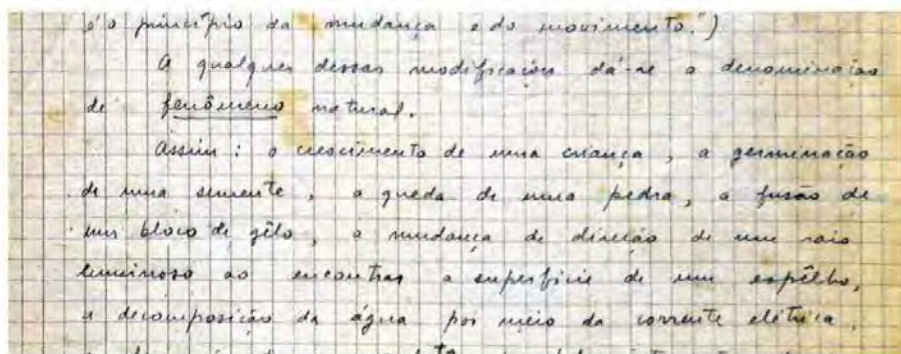 é o princípio da mudança e do movimento.")
A qualquer dessas modificações dá-se a denominação
de fenômeno natural.
Assim: o crescimento de uma criança, a germinação
de uma semente, a queda de uma pedra, a fusão de
um bloco de gêlo, a mudança de direção de um raio
luminoso ao encontrar a superfície de um espêlho,
a decomposição da água por meio da corrente elétrica,